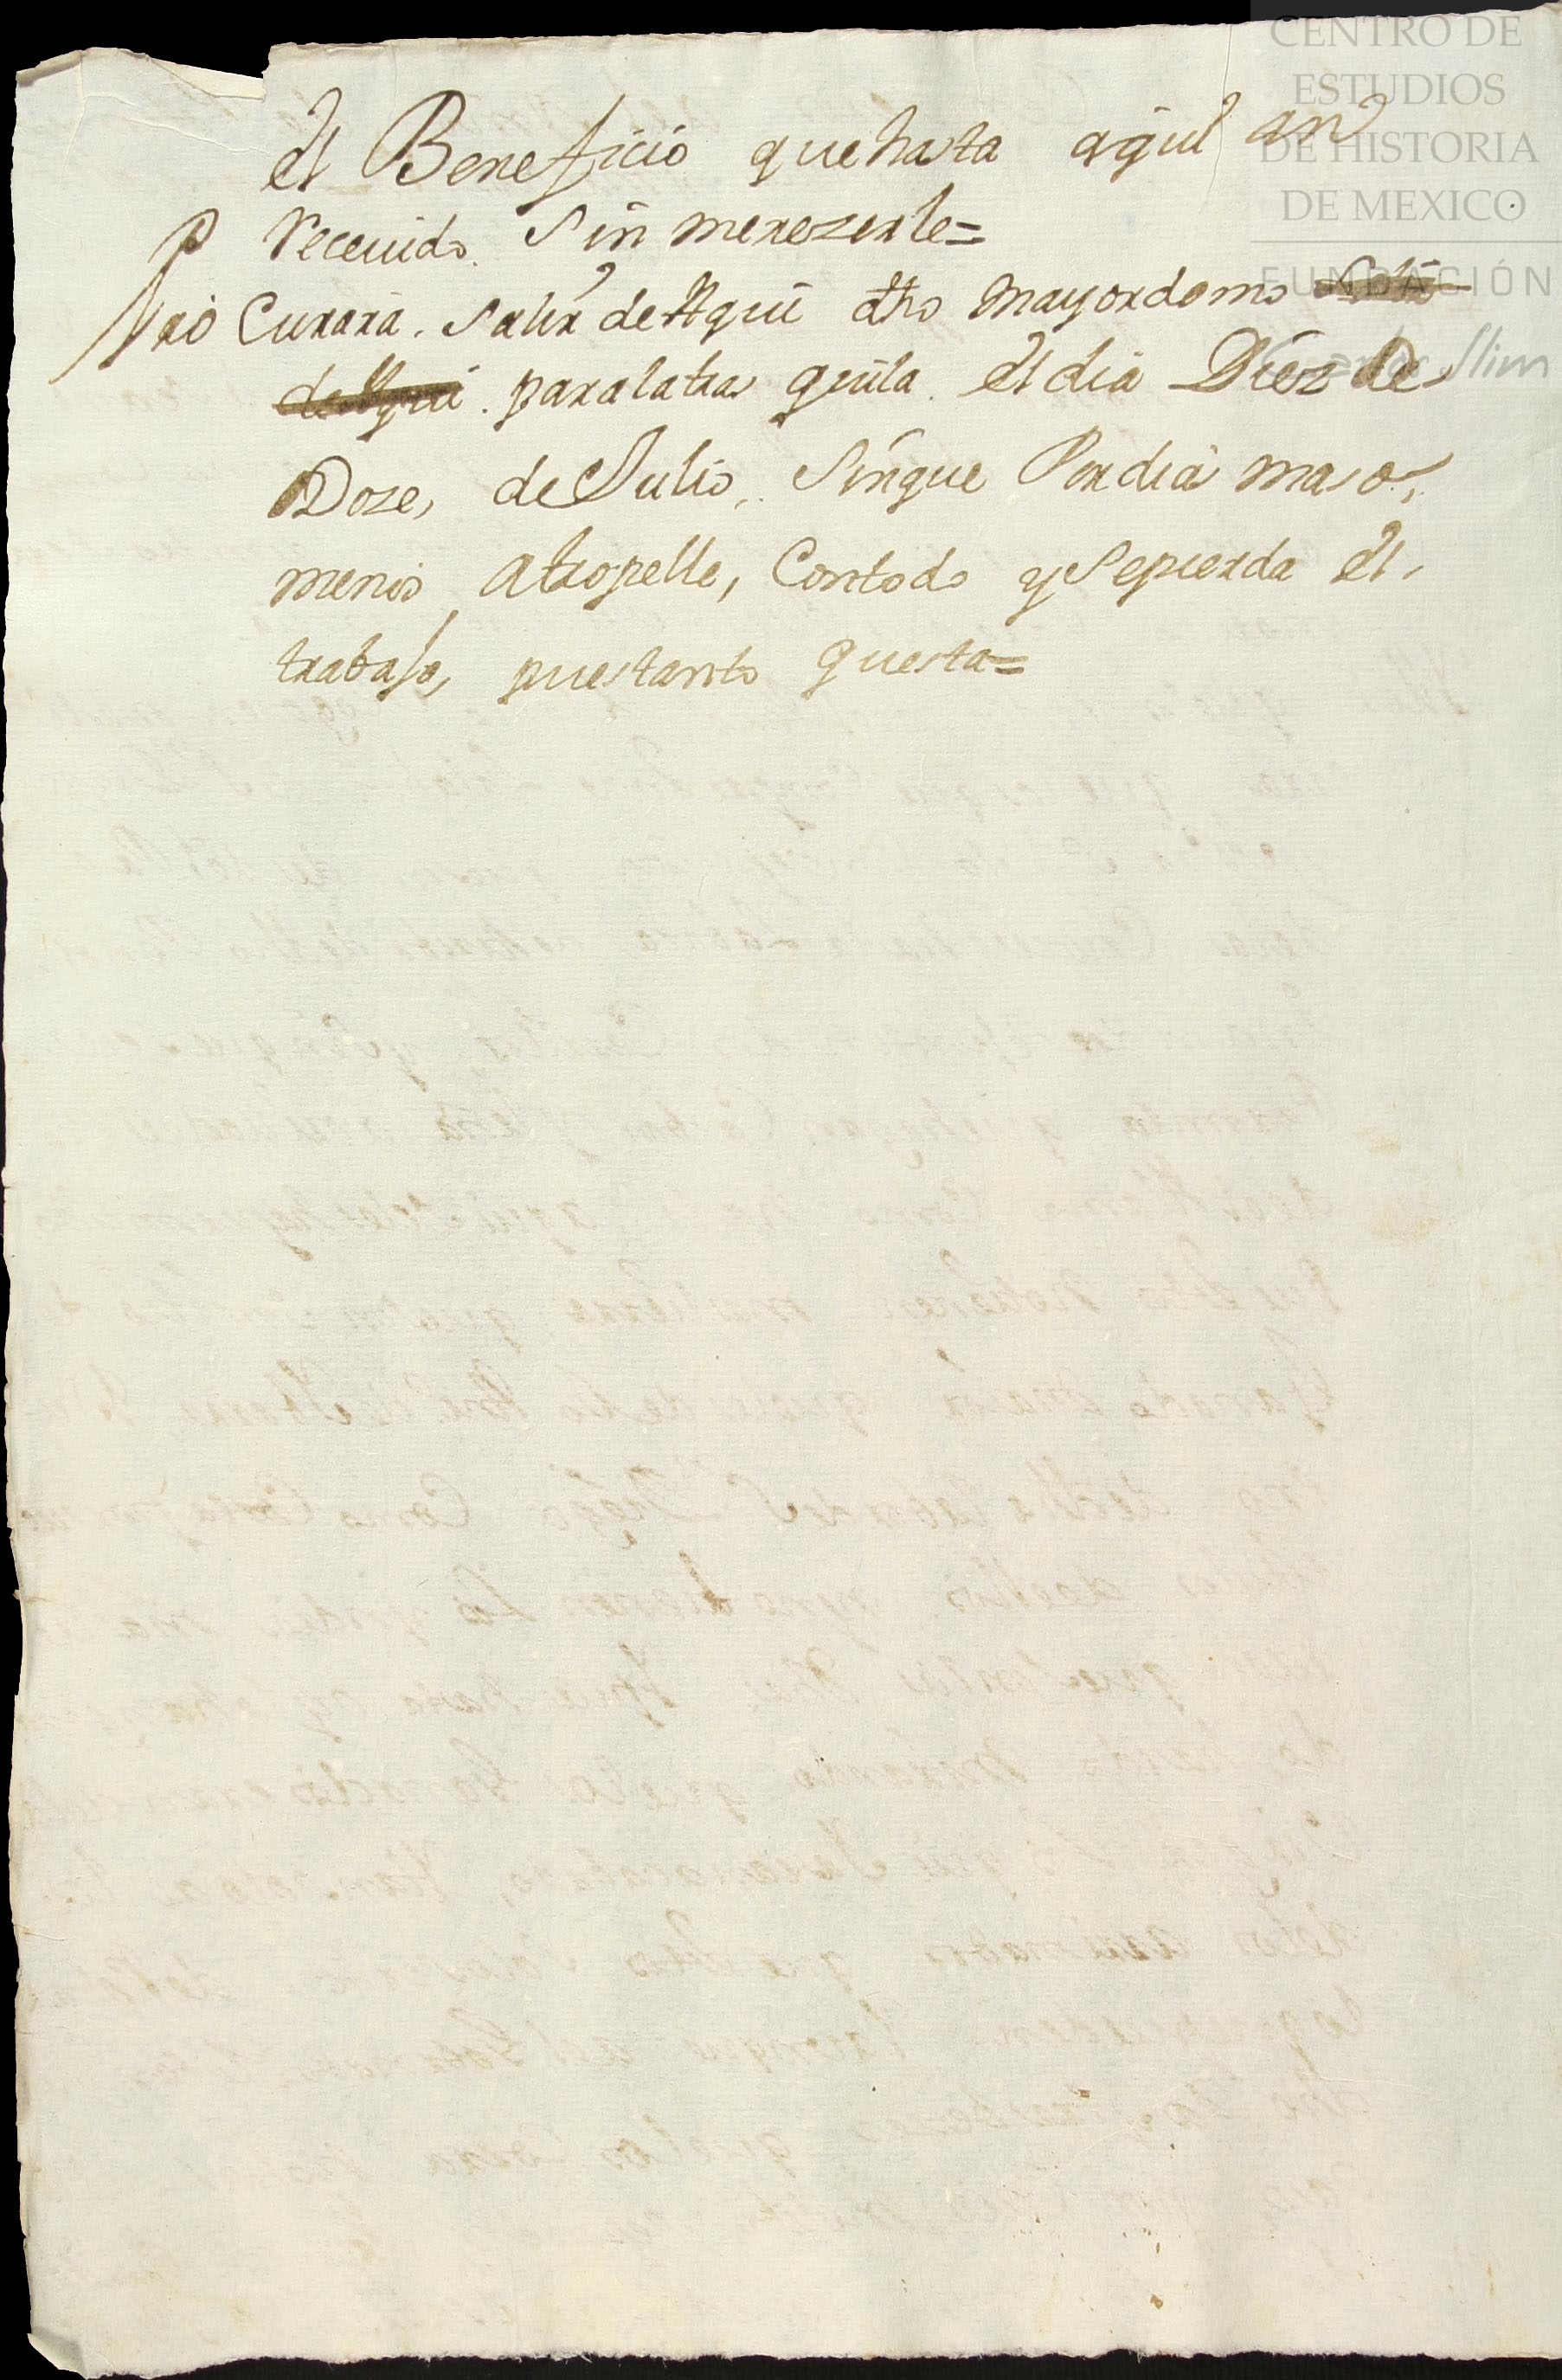 CENTRO DE
ESTUDIOS
DE HISTORIA
DE MEXICO
FUNDACIÓN
Carlos Slim
el Beneficio que hasta aqui an
receuido. Sin merezerle=
Procurara. Salir de Aqui dho mayordomo
de Aqui. para la trasquila. el dia Diez de
Doze, de Julio, Sinque Por dia mas o,
menos Atropelle, Con todo y Se pierda el,
trabajo, pues tanto questa=